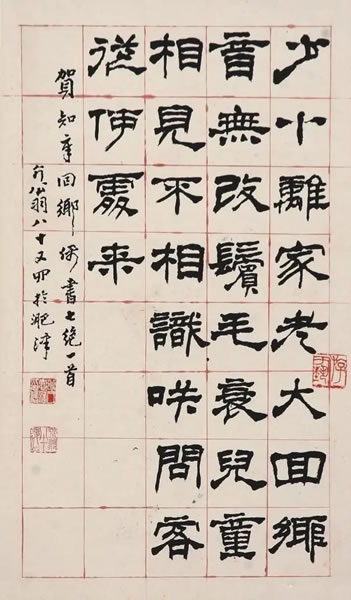 少小離家老大回鄉
音無改鬢毛衰兒童
相見不相識咲問客
從何處来
賀知章回鄉偶書七絕一首
八十又四於淝